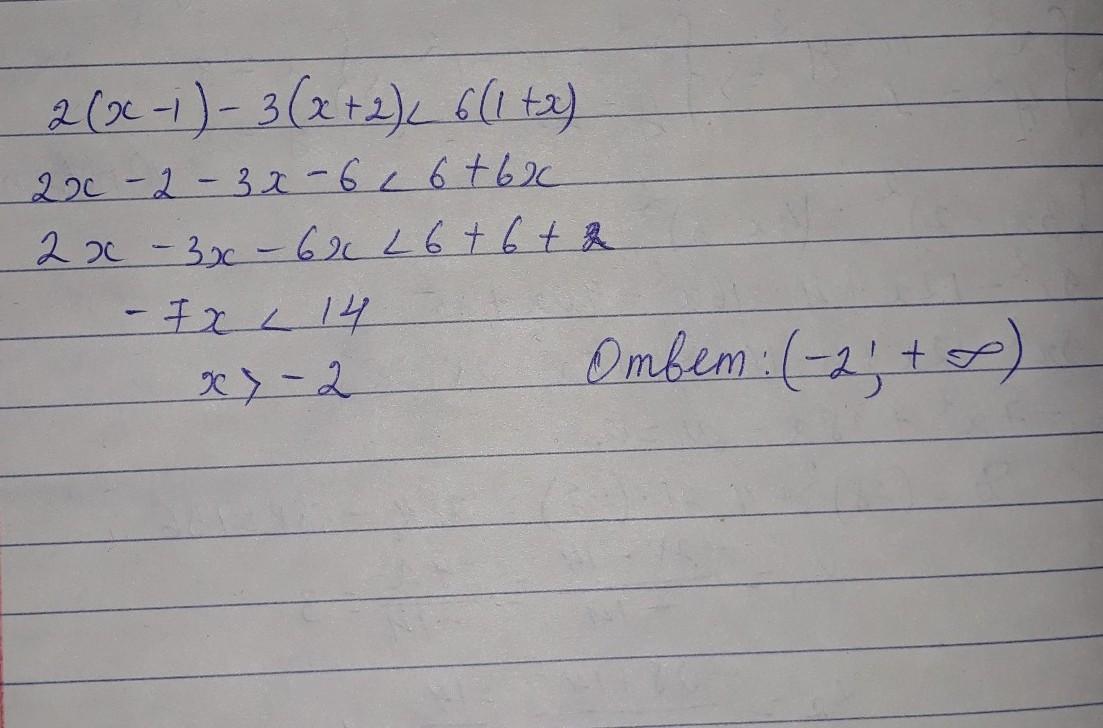 2(x-1)-3(x+2)< 6(1+x)
2x-2-3x-6<6+6x
2x-3x-6x<6+6+2
-7x<14
x>-2 Ответ: (-2; +∞)